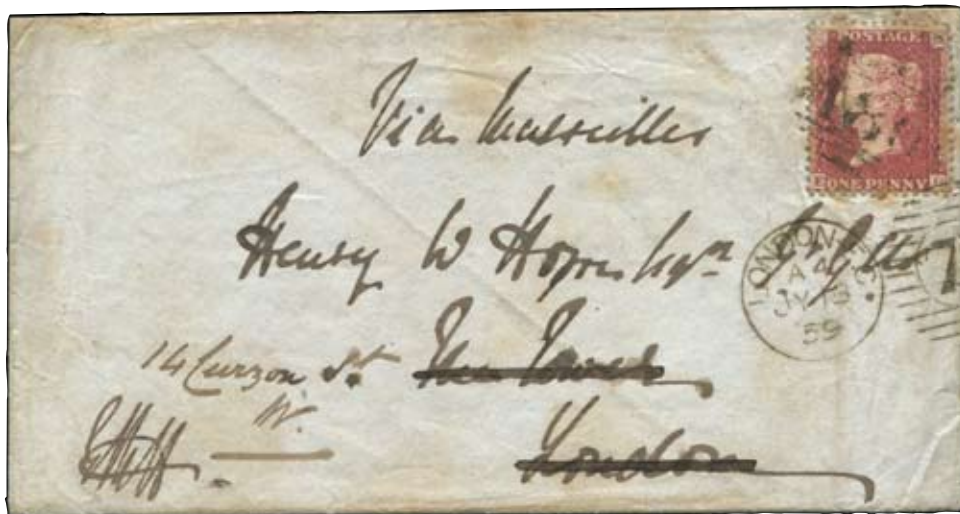 POSTAGE
ONE PENNY
Via Marseilles
Henry W Hope Esqre Gr Gds
LONDON
A 4
JY 13
59
14 Curzon St The Tower
W.
London